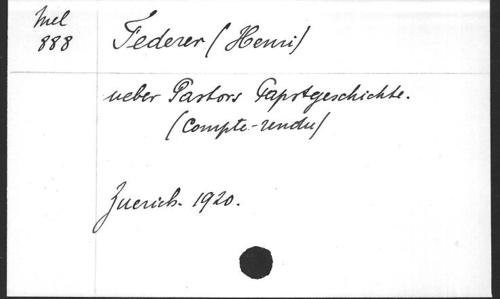 Mel
888
Federer (Henri)
ueber Pastors Papstgeschichte.
(Compte-rendu)
Zuerich. 1920.